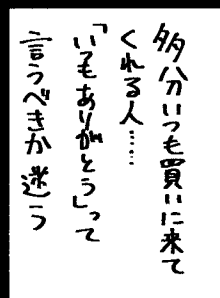 多分いつも買いに来て
くれる人……
「いつもありがとう」って
言うべきか迷う